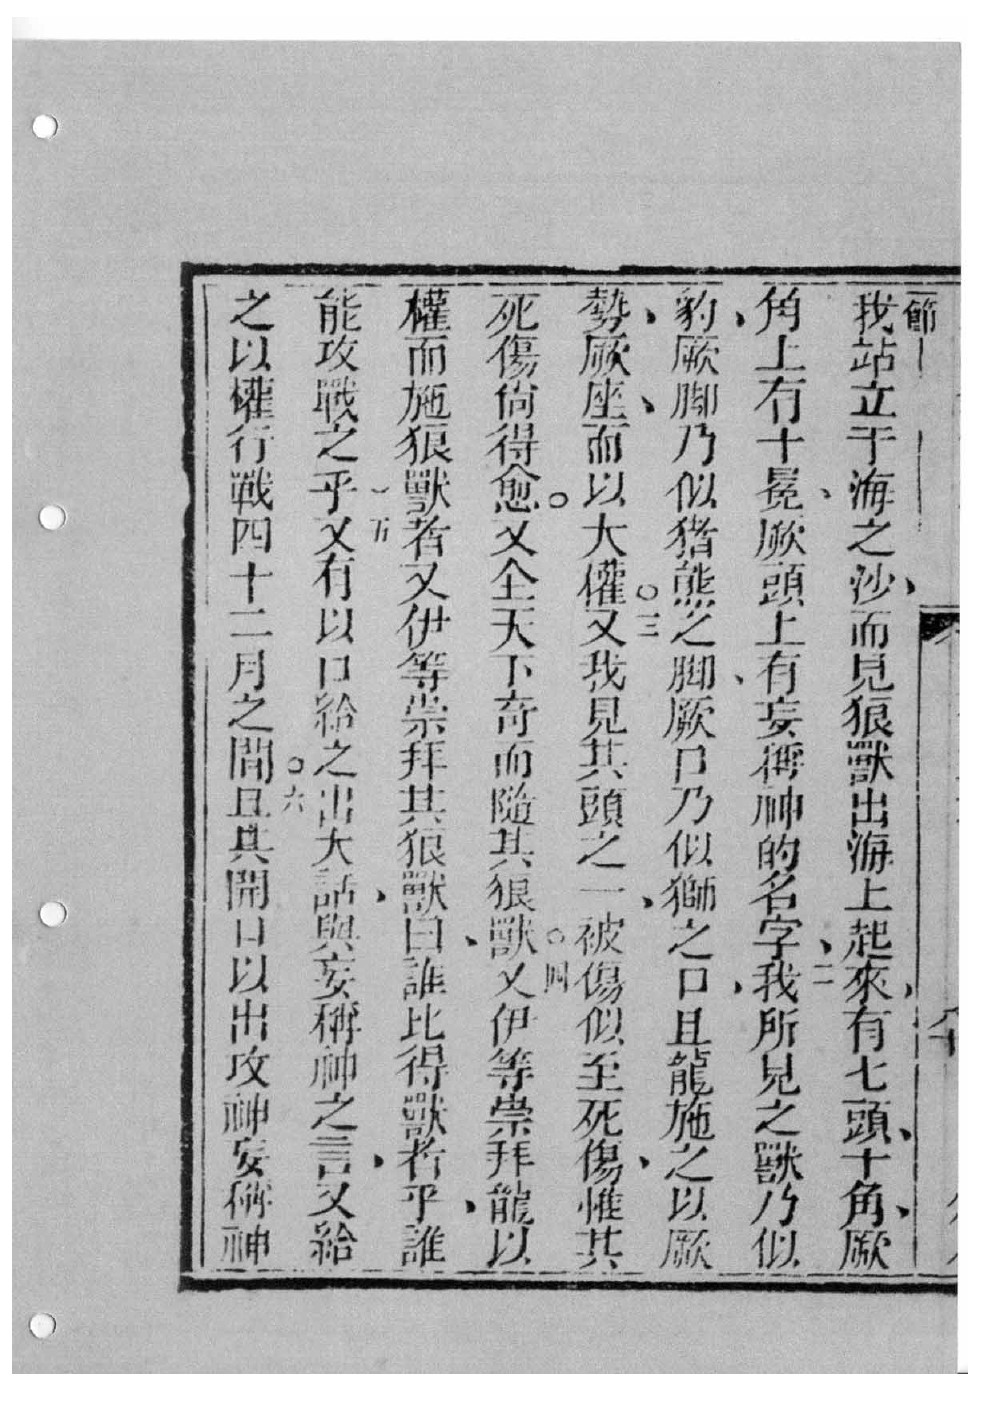 節一
我站立于海之沙、而見狼獸出海上起來、有七頭、十角、厥
角上有十冕、厥頭上有妄稱神的名字、二我所見之獸乃似
豹、厥脚乃似猪熊之脚、厥口乃似獅之口、且龍施之以厥
勢、厥座、而以大權○三又我見其頭之一、被傷似至死傷、惟其
死傷尙得愈○又仝天下奇而隨其狼獸○四又伊等崇拜龍以
權而施狼獸者又伊等崇拜其狼獸曰、誰比得獸者乎、誰
能攻戰之乎五又有以口給之出大話、與妄稱神之言、又給
之以權行戰四十二月之間○六且其開口以出攻神妄稱神